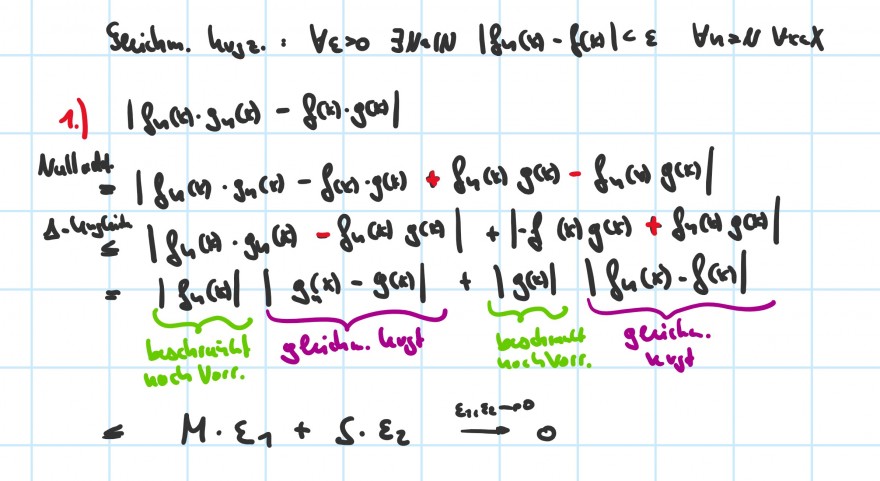 Gleichm. kvgz. : ∀ε>0 ∃N∈ℕ |fₙ(x) - f(x)| < ε ∀n≥N ∀x∈X
1.) |fₙ(x)·gₙ(x) - f(x)·g(x)|
Nulladd. = |fₙ(x)·gₙ(x) - f(x)·g(x) + fₙ(x) g(x) - fₙ(x) g(x)|
Δ-Ungleich ≤ |fₙ(x)·gₙ(x) - fₙ(x) g(x)| + |-f(x) g(x) + fₙ(x) g(x)|
= |fₙ(x)| |gₙ(x) - g(x)| + |g(x)| |fₙ(x) - f(x)|
beschränkt nach Vorr. gleichm. kvgt beschränkt nach Vorr. gleichm. kvgt
≤ M·ε₁ + S·ε₂ ε₁,ε₂→0 ⟶ 0